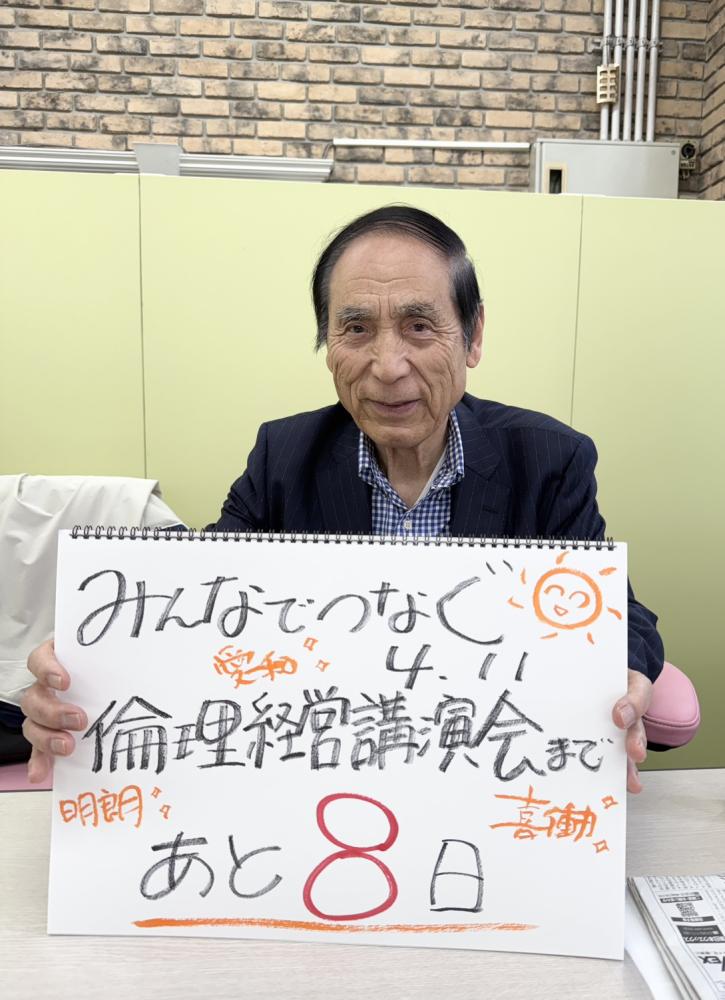 みんなでつなぐ
愛和 4.11
倫理経営講演会まで
明朗 喜働
あと8日